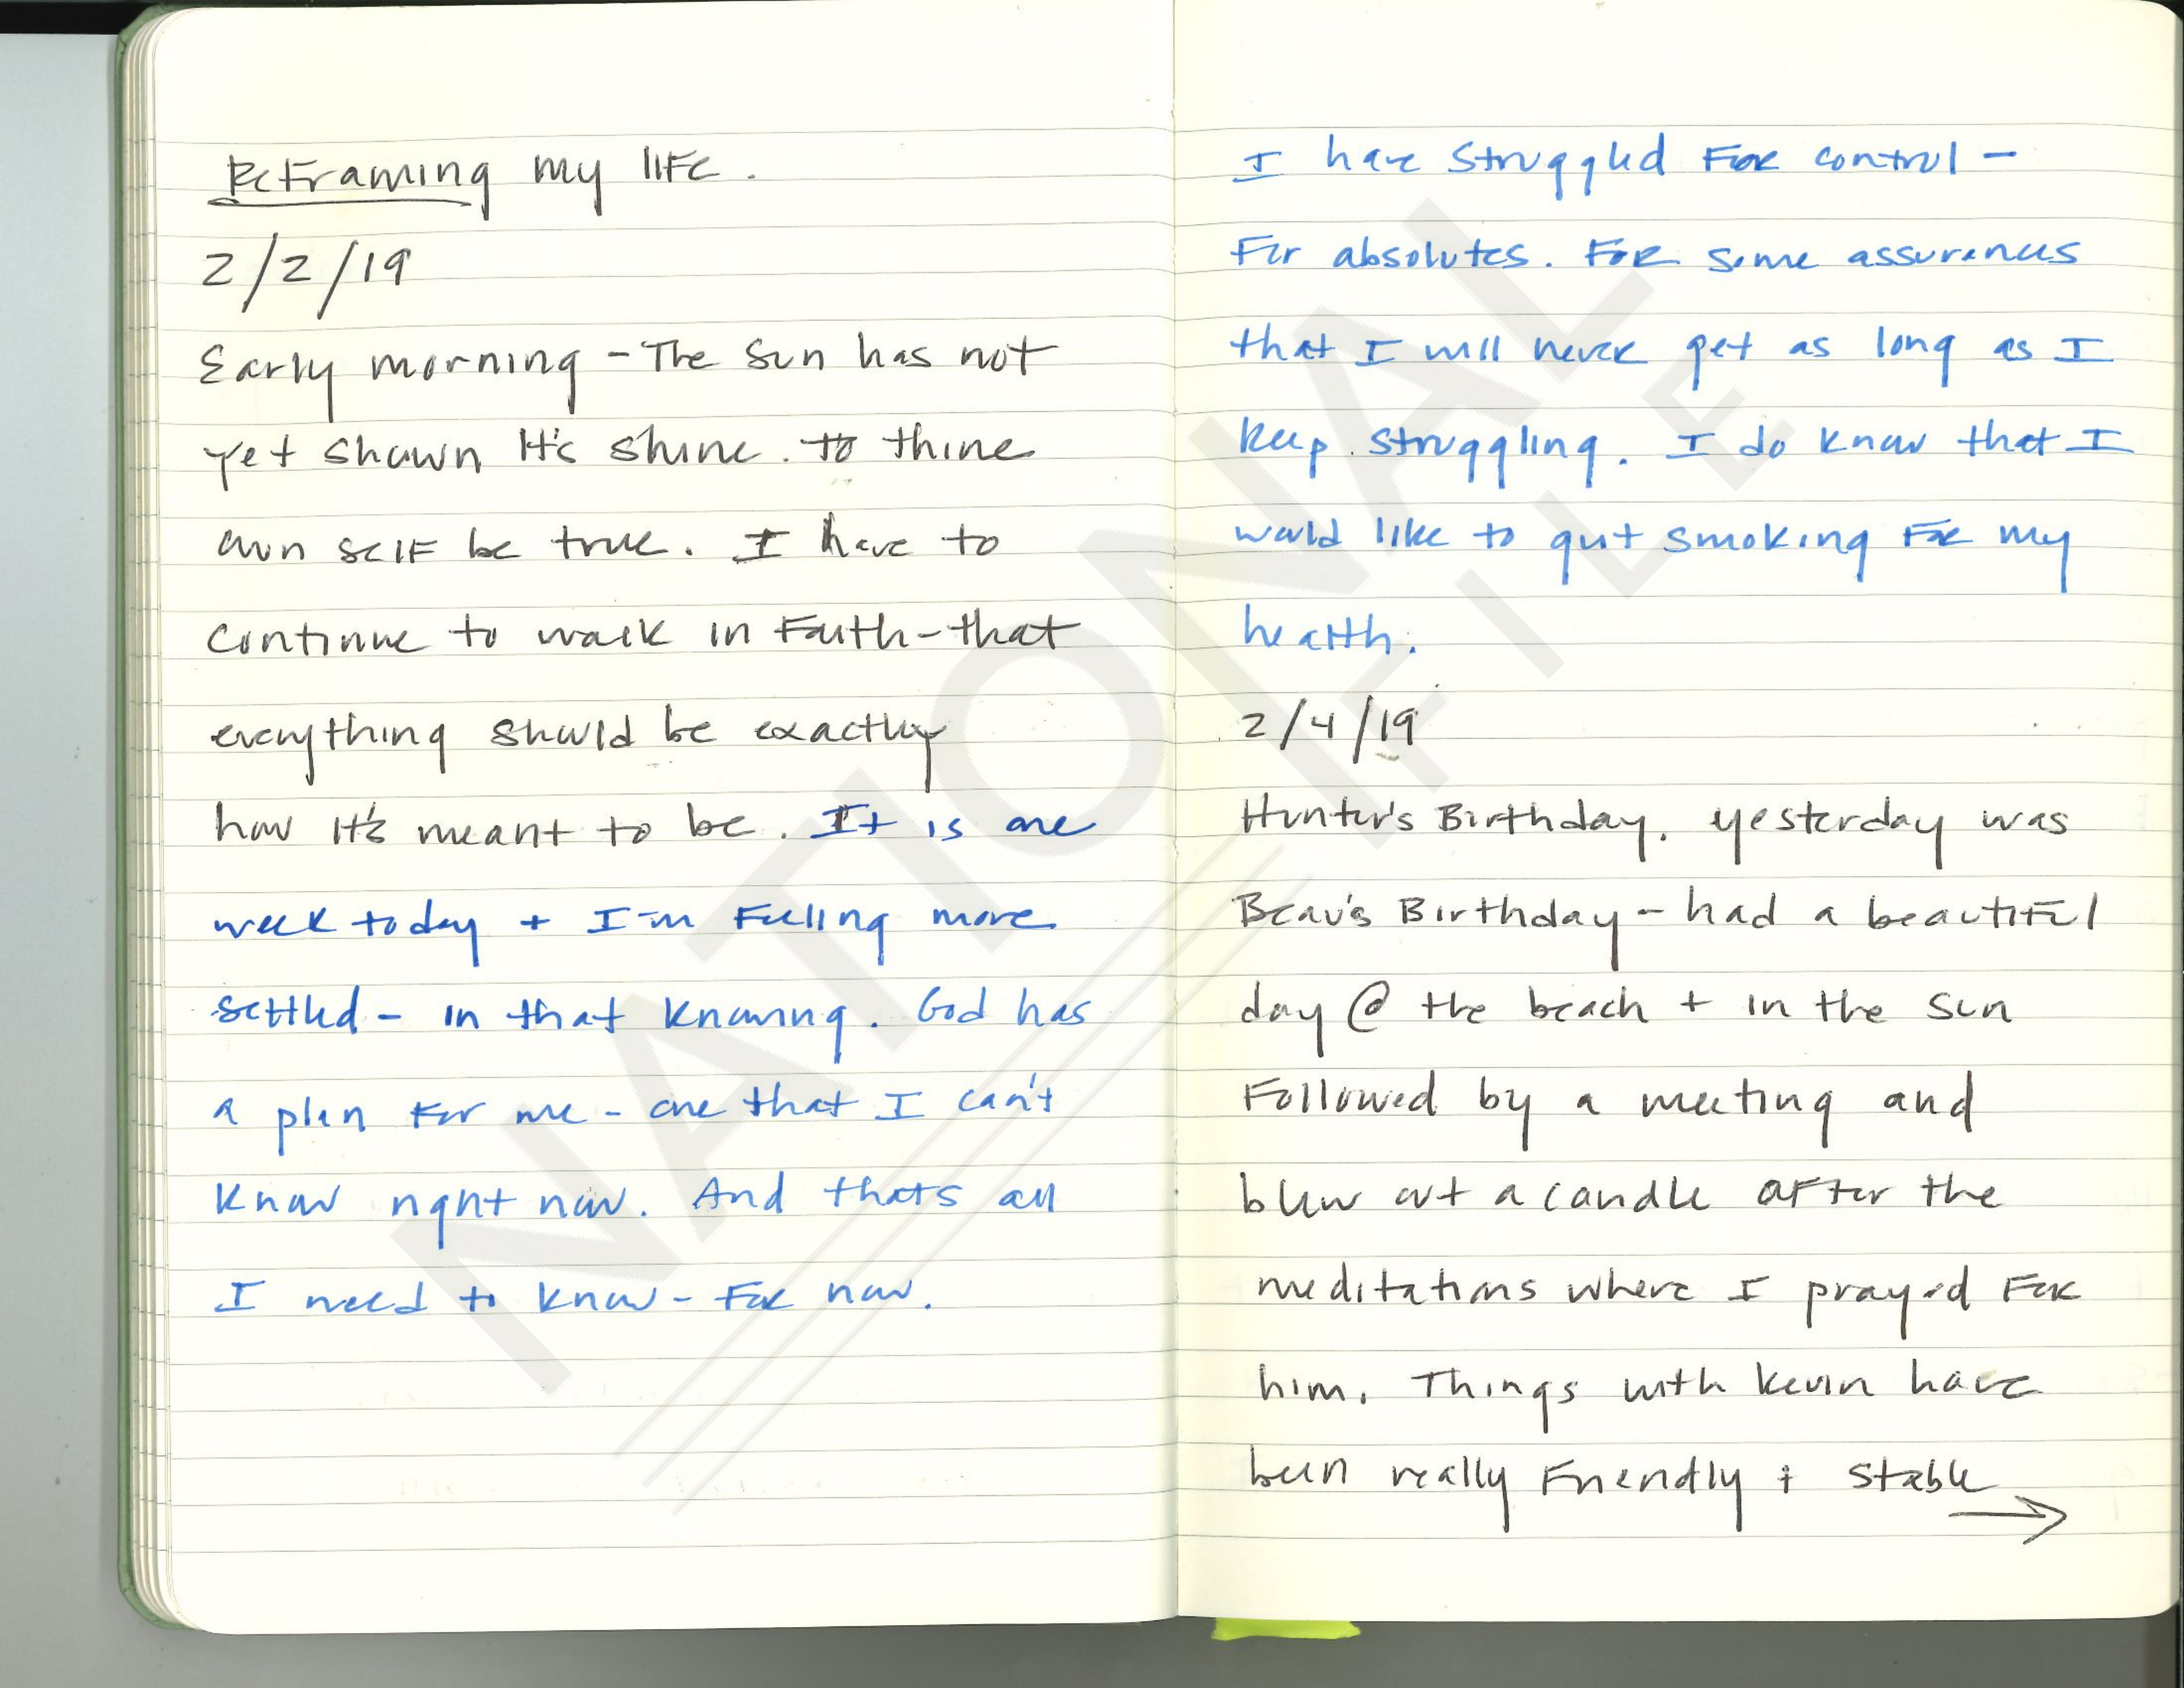 Reframing my life.
2/2/19
Early morning - The sun has not
yet shown it's shine. to thine
own self be true. I have to
continue to walk in Faith - that
everything should be exactly
how it's meant to be. It is one
week today + I'm Feeling more
settled - in that knowing. God has
a plan For me - one that I can't
know right now. And thats all
I need to know - For now.
I have struggled For control -
For absolutes. For some assurances
that I will never get as long as I
keep struggling. I do know that I
would like to quit smoking For my
health.
2/4/19
Hunter's Birthday. yesterday was
Beau's Birthday - had a beautiful
day @ the beach + in the sun
Followed by a meeting and
blew out a candle after the
meditations where I prayed For
him. Things with Kevin have
been really Friendly + stable
→
NATIONAL
FILE